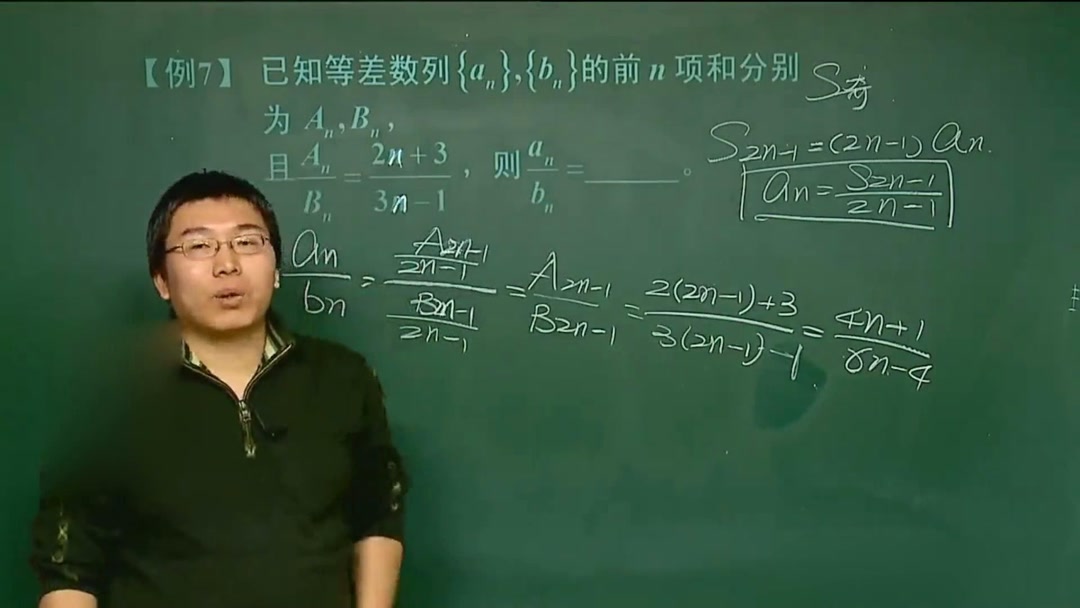 【例7】 已知等差数列{aₙ},{bₙ}的前 n 项和分别
为 Aₙ,Bₙ,
且 Aₙ/Bₙ = (2n+3)/(3n-1) , 则 aₙ/bₙ = ______。
S奇
S₂ₙ₋₁=(2n-1)aₙ.
aₙ = S₂ₙ₋₁/(2n-1)
aₙ/bₙ = (A₂ₙ₋₁/(2n-1))/(B₂ₙ₋₁/(2n-1)) = A₂ₙ₋₁/B₂ₙ₋₁ = (2(2n-1)+3)/(3(2n-1)-1) = (4n+1)/(6n-4)